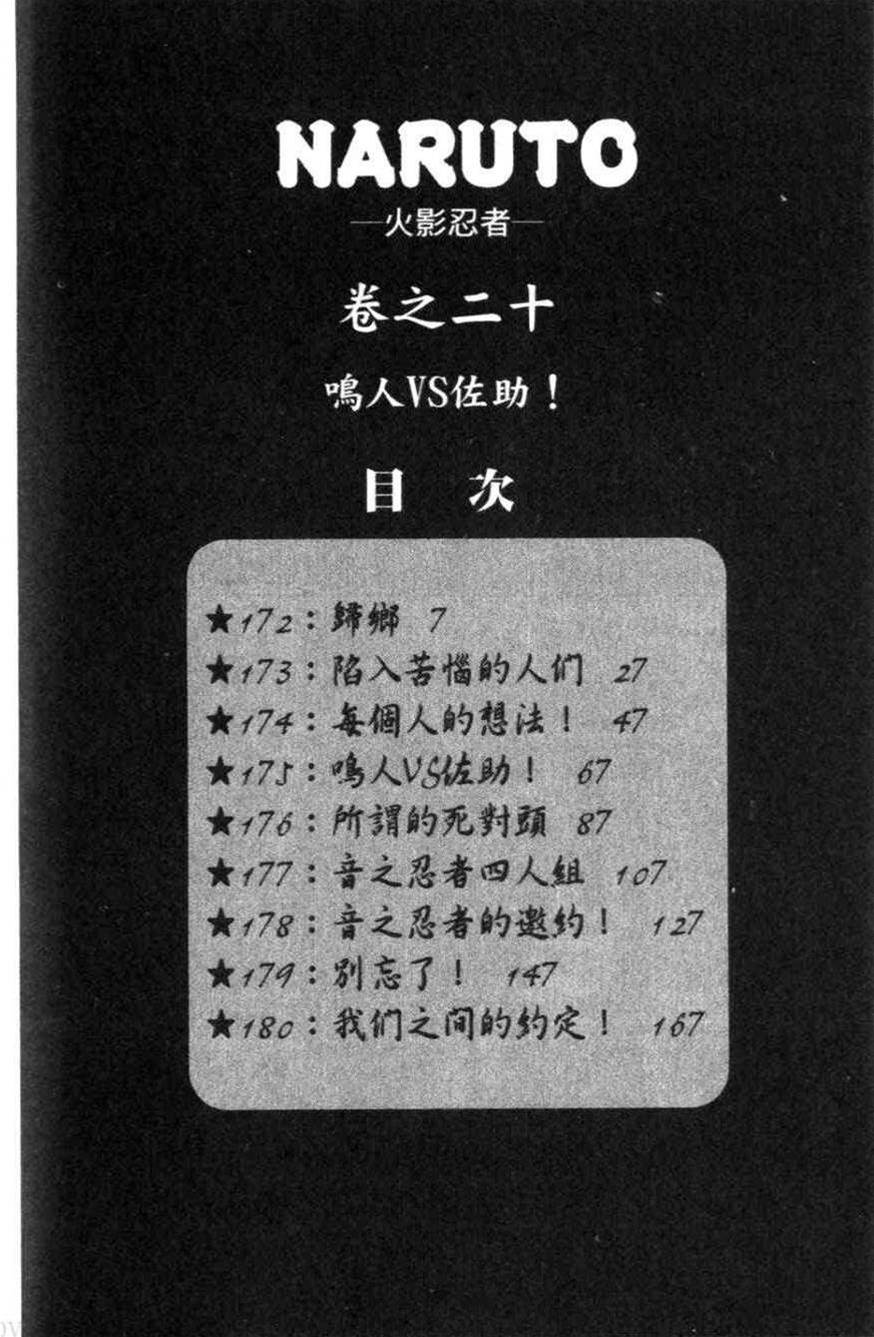 NARUTO
—火影忍者—
卷之二十
鳴人VS佐助！
目 次
★172：歸鄉 7
★173：陷入苦惱的人们 27
★174：每個人的想法！ 47
★175：鳴人VS佐助！ 67
★176：所謂的死對頭 87
★177：音之忍者四人組 107
★178：音之忍者的邀約！ 127
★179：別忘了！ 147
★180：我们之间的約定！ 167